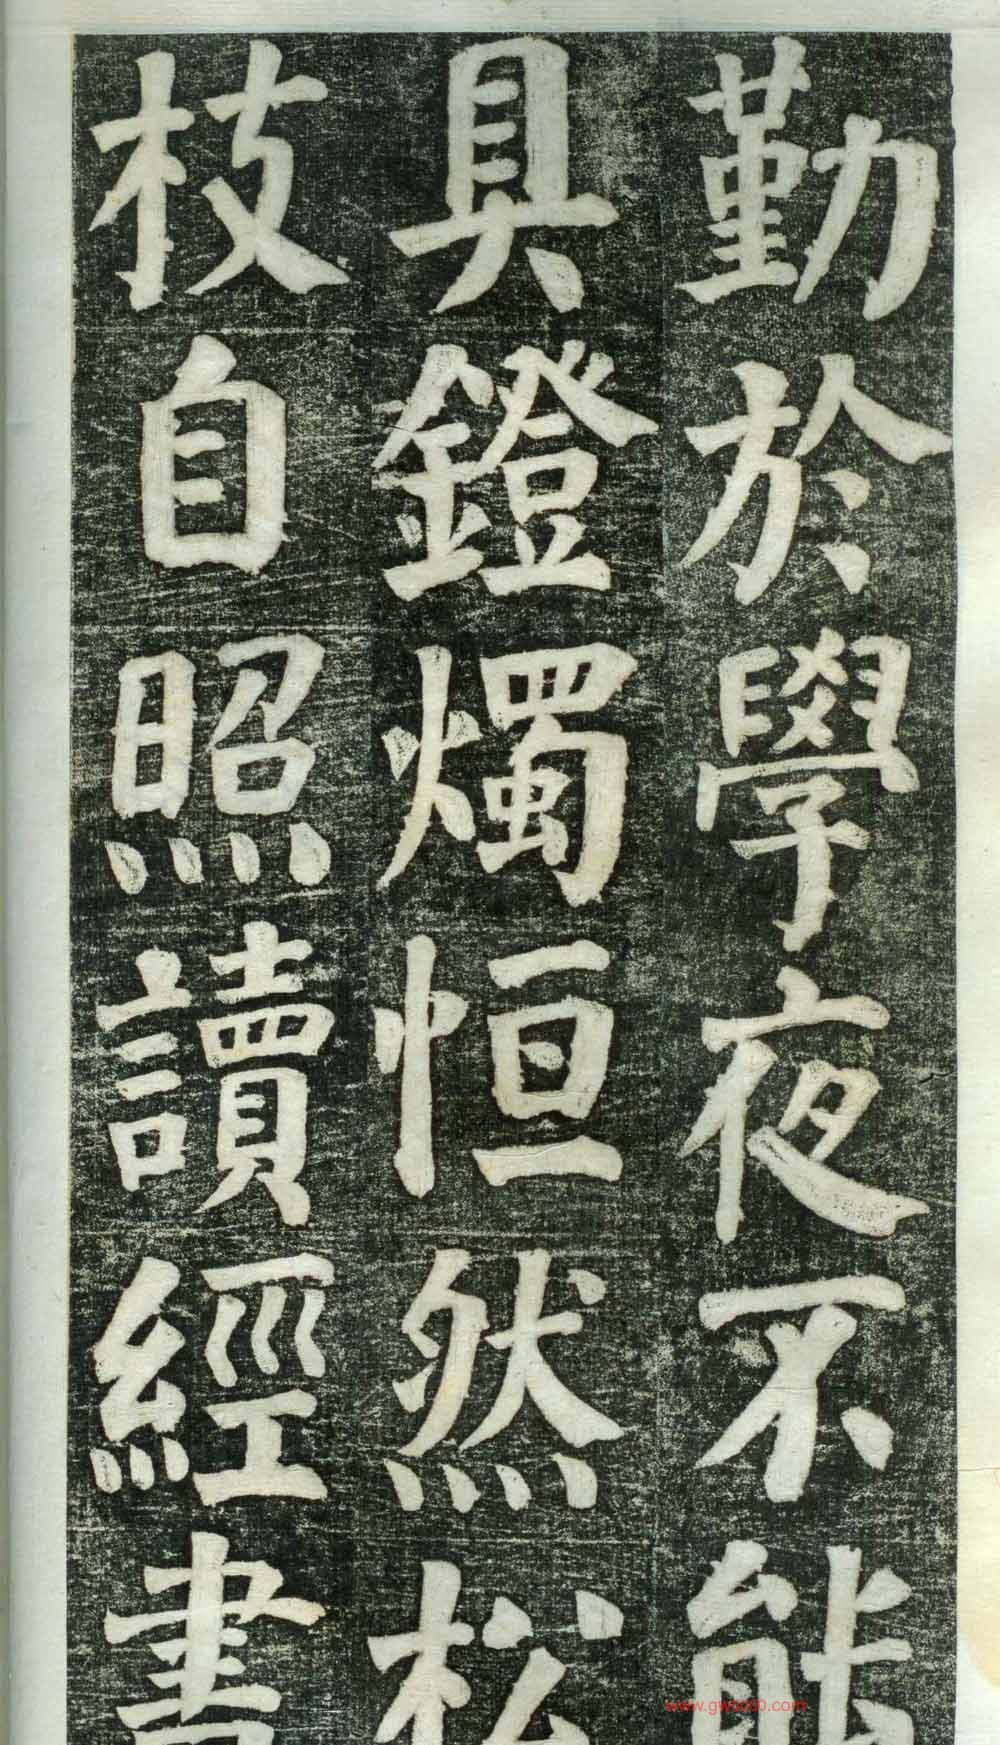 勤於學夜不能
具鐙燭恒然松
枝自照讀經書
www.gw8060.com